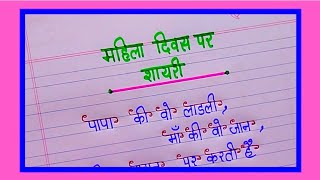 महिला दिवस पर
शायरी
पापा की वो लाडली,
माँ की वो जान,
पर करती है